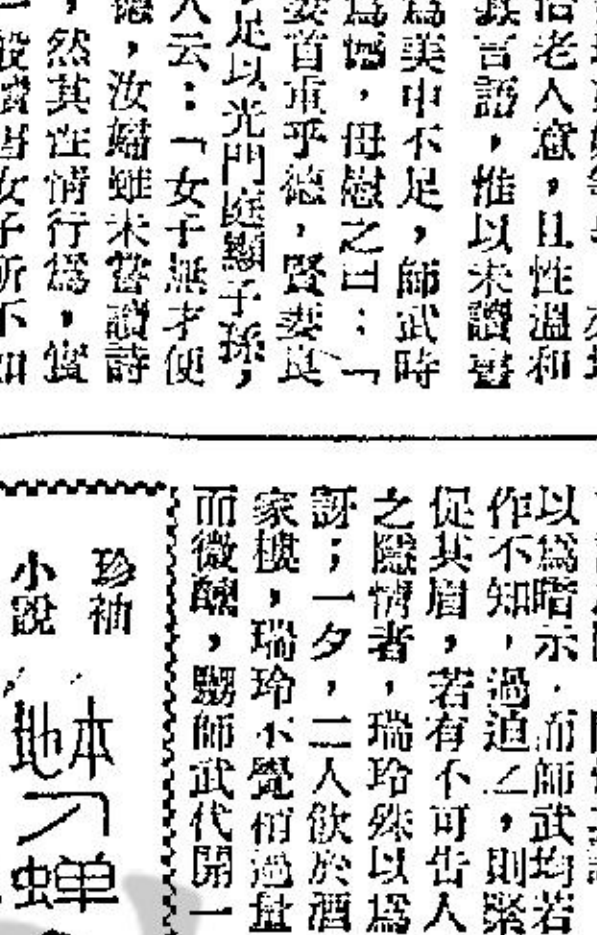 治老人意，且性溫和
言語，惟以未讀書
爲美中不足，師武時
爲憾，母慰之曰：「
妻首重乎德，賢妻良
足以光門庭顯子孫，
人云：「女子無才便
德，汝婦雖未嘗讀詩
，然其性情行爲，實
般讀書女子所不如
以爲暗示，而師武均若
作不知，過迫之，則緊
促其眉，若有不可告人
之隱情者，瑞玲殊以爲
訝；一夕，二人飲於酒
家樓，瑞玲不覺稍過量
而微醺，嬲師武代開一
珍袖
小說
本
地
蟬